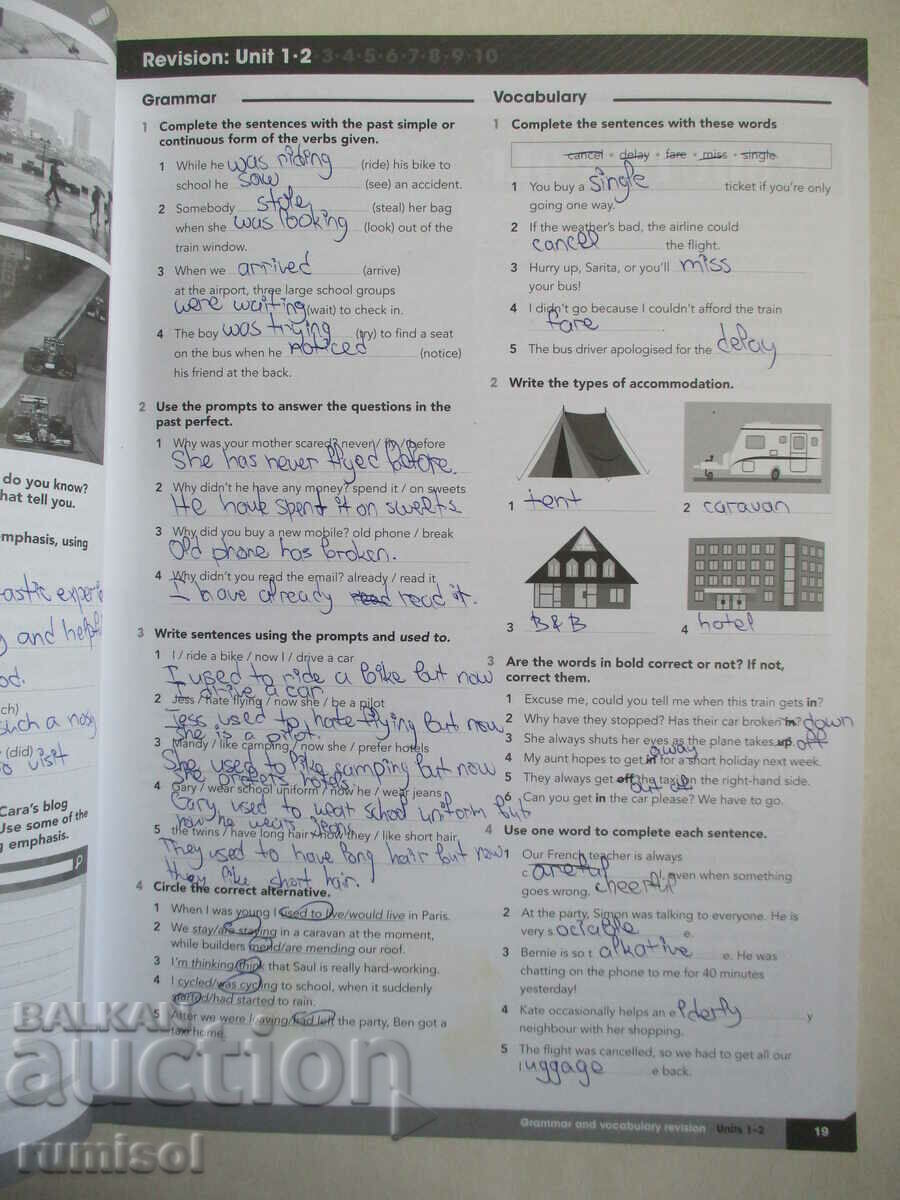 Revision: Unit 1·2·3·4·5·6·7·8·9·10
Grammar
1 Complete the sentences with the past simple or
continuous form of the verbs given.
1 While he was riding (ride) his bike to
school he saw (see) an accident.
2 Somebody stole (steal) her bag
when she was looking (look) out of the
train window.
3 When we arrived (arrive)
at the airport, three large school groups
were waiting (wait) to check in.
4 The boy was trying (try) to find a seat
on the bus when he noticed (notice)
his friend at the back.
2 Use the prompts to answer the questions in the
past perfect.
1 Why was your mother scared? never / fly / before
She has never flyed before.
2 Why didn't he have any money? spend it / on sweets
He have spent it on sweets
3 Why did you buy a new mobile? old phone / break
Old phone has broken.
4 Why didn't you read the email? already / read it
I have already read read it.
3 Write sentences using the prompts and used to.
1 I / ride a bike / now I / drive a car
I used to ride a bike but now
I drive a car
2 Jess / hate flying / now she / be a pilot
Jess used to hate flying but now
she is a pilot.
3 Mandy / like camping / now she / prefer hotels
She used to like camping but now
she prefers hotels.
4 Gary / wear school uniform / now he / wear jeans
Gary used to wear school uniform but
now he wears jeans
5 the twins / have long hair / now they / like short hair
They used to have long hair but now
they like short hair.
4 Circle the correct alternative.
1 When I was young I used to live/would live in Paris.
2 We stay/are staying in a caravan at the moment,
while builders mend/are mending our roof.
3 I'm thinking/think that Saul is really hard-working.
4 I cycled/was cycling to school, when it suddenly
started/had started to rain.
5 After we were leaving/had left the party, Ben got a
taxi home.
Vocabulary
1 Complete the sentences with these words
cancel • delay • fare • miss • single
1 You buy a single ticket if you're only
going one way.
2 If the weather's bad, the airline could
cancel the flight.
3 Hurry up, Sarita, or you'll miss
your bus!
4 I didn't go because I couldn't afford the train
fare
5 The bus driver apologised for the delay
2 Write the types of accommodation.
1 tent
2 caravan
3 B&B
4 hotel
3 Are the words in bold correct or not? If not,
correct them.
1 Excuse me, could you tell me when this train gets in?
2 Why have they stopped? Has their car broken in? down
3 She always shuts her eyes as the plane takes up. off
4 My aunt hopes to get in for a short holiday next week.
away
5 They always get off the taxi on the right-hand side.
out of
6 Can you get in the car please? We have to go.
4 Use one word to complete each sentence.
1 Our French teacher is always
c areful l, even when something
goes wrong. cheerful
2 At the party, Simon was talking to everyone. He is
very s ociable e.
3 Bernie is so t alkative e. He was
chatting on the phone to me for 40 minutes
yesterday!
4 Kate occasionally helps an e lderly y
neighbour with her shopping.
5 The flight was cancelled, so we had to get all our
luggage e back.
Grammar and vocabulary revision Units 1–2 19
do you know?
hat tell you.
mphasis, using
and
od.
ch)
such a
(did)
o visit
Cara's blog
Use some of the
g emphasis.
BALKAN
auction
rumisol